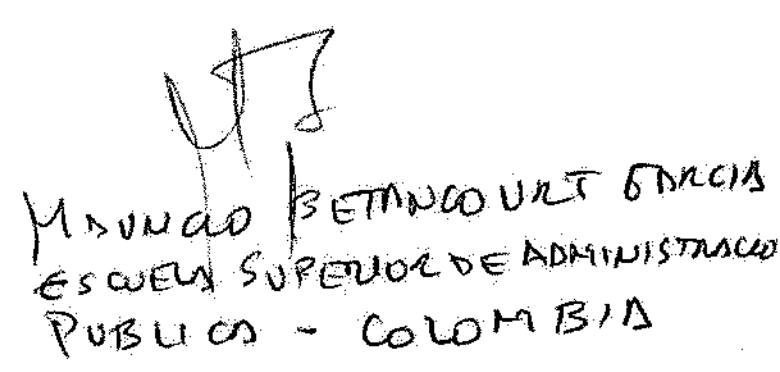 MAURICIO BETANCOURT GARCIA
ESCUELA SUPERIOR DE ADMINISTRACIO
PUBLICA - COLOMBIA